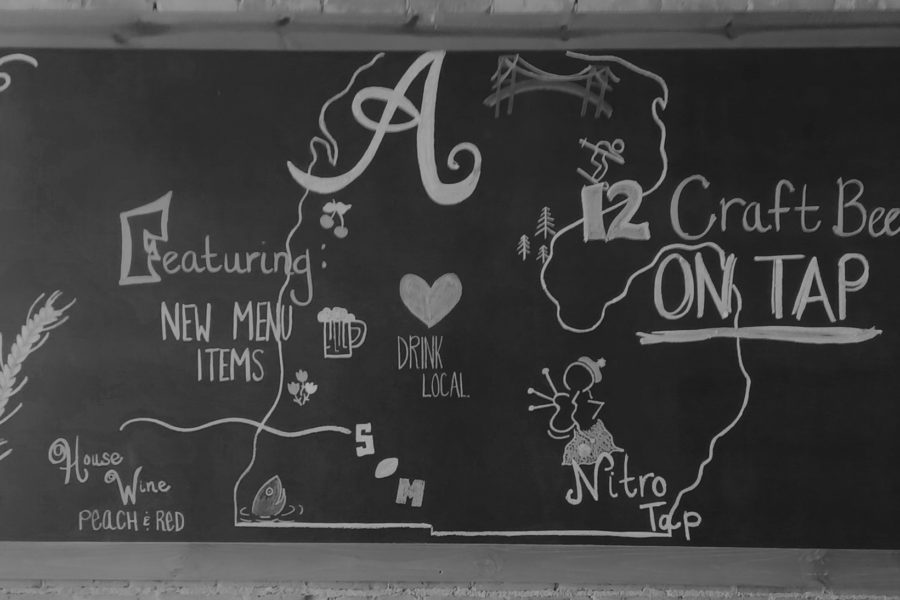 A
Featuring:
NEW MENU
ITEMS
DRINK
LOCAL.
12 Craft Bee
ON TAP
S
M
House
Wine
PEACH & RED
Nitro
Tap